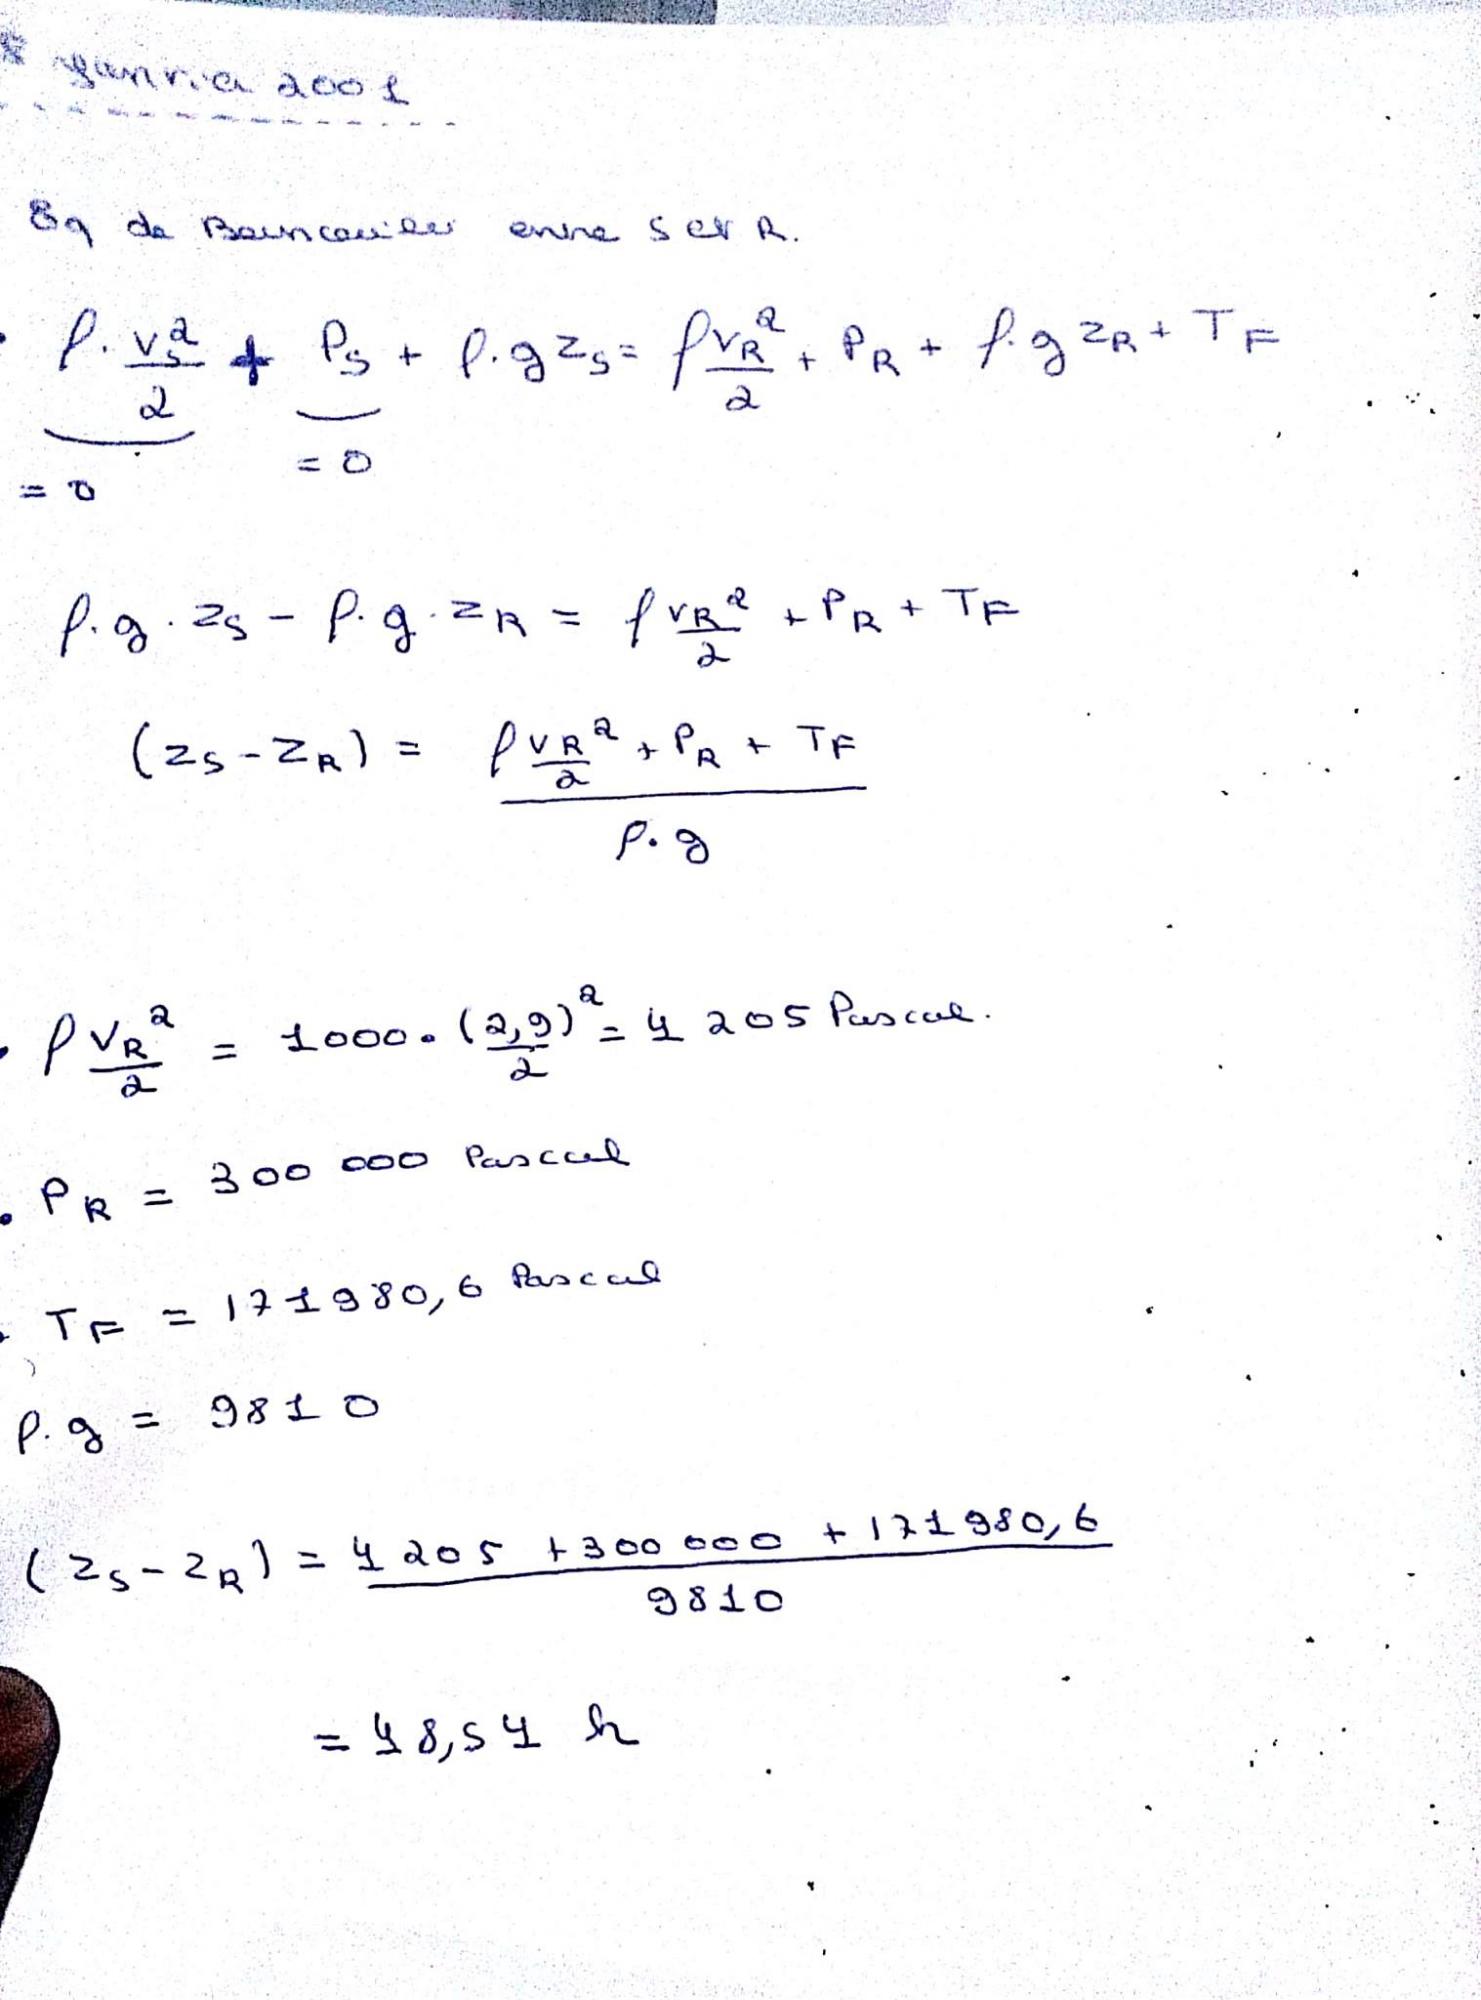 Janvier 2001
Eq de Bernoulli entre S et R.
ρ.vs²/2 + Ps + ρ.g zs = ρ vR²/2 + PR + ρ.g zR + TF
= 0
= 0
ρ.g.zs - ρ.g.zR = ρ vR²/2 + PR + TF
(zs - zR) = (ρ vR²/2 + PR + TF) / ρ.g
ρ vR²/2 = 1000.(2,9)²/2 = 4 205 Pascal.
PR = 300 000 Pascal
TF = 171980,6 Pascal
ρ.g = 9810
(zs - zR) = (4 205 + 300 000 + 171980,6) / 9810
= 48,54